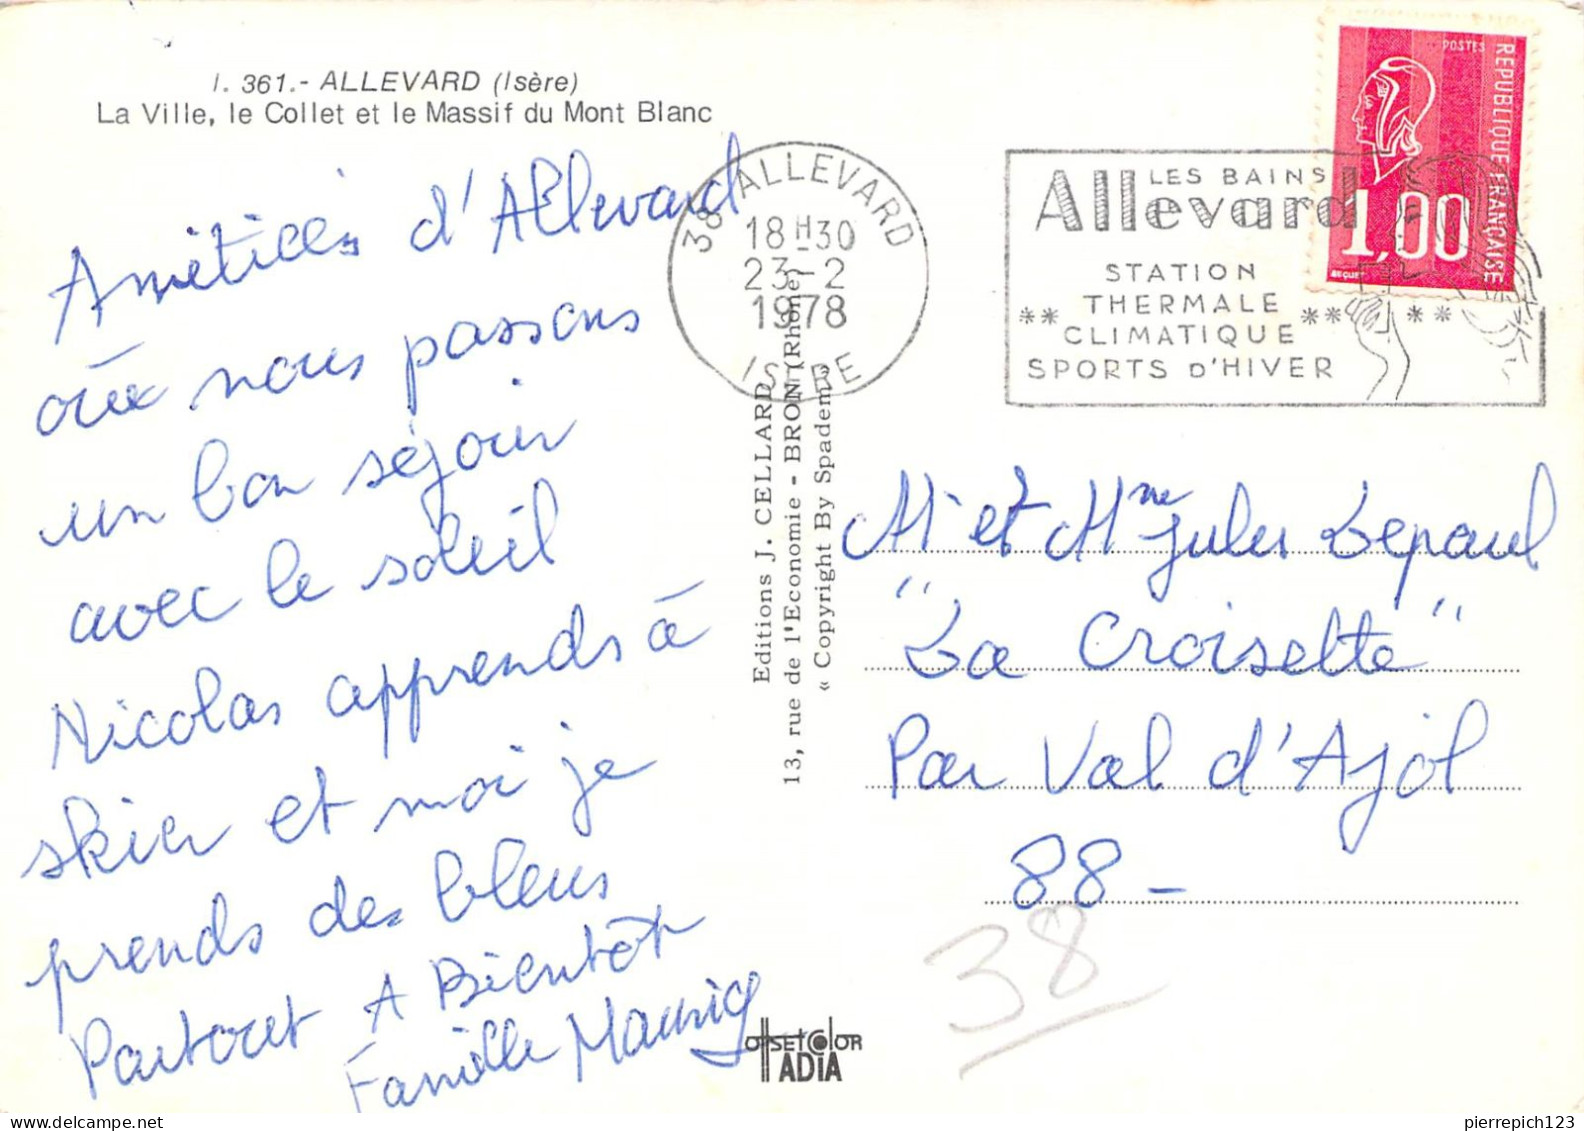 I. 361.- ALLEVARD (Isère)
La Ville, le Collet et le Massif du Mont Blanc
Amitiés d'Allevard
où nous passons
un bon séjour
avec le soleil
Nicolas apprends à
skier et moi je
prends des bleus
Partout A Bientôt
Famille
38 ALLEVARD
18 H 30
23-2
1978
ISERE
LES BAINS
Allevard
STATION
THERMALE
** CLIMATIQUE ** **
SPORTS D'HIVER
POSTES
REPUBLIQUE FRANÇAISE
1,00
BEQUET
Editions J. CELLARD
13, rue de l'Economie - BRON (Rhône)
« Copyright By Spadem »
Mr et Mme Jules Lepaul
"La Croisette"
Par Val d'Ajol
88 -
38
OFFSET COLOR
IADIA
pierrepich123